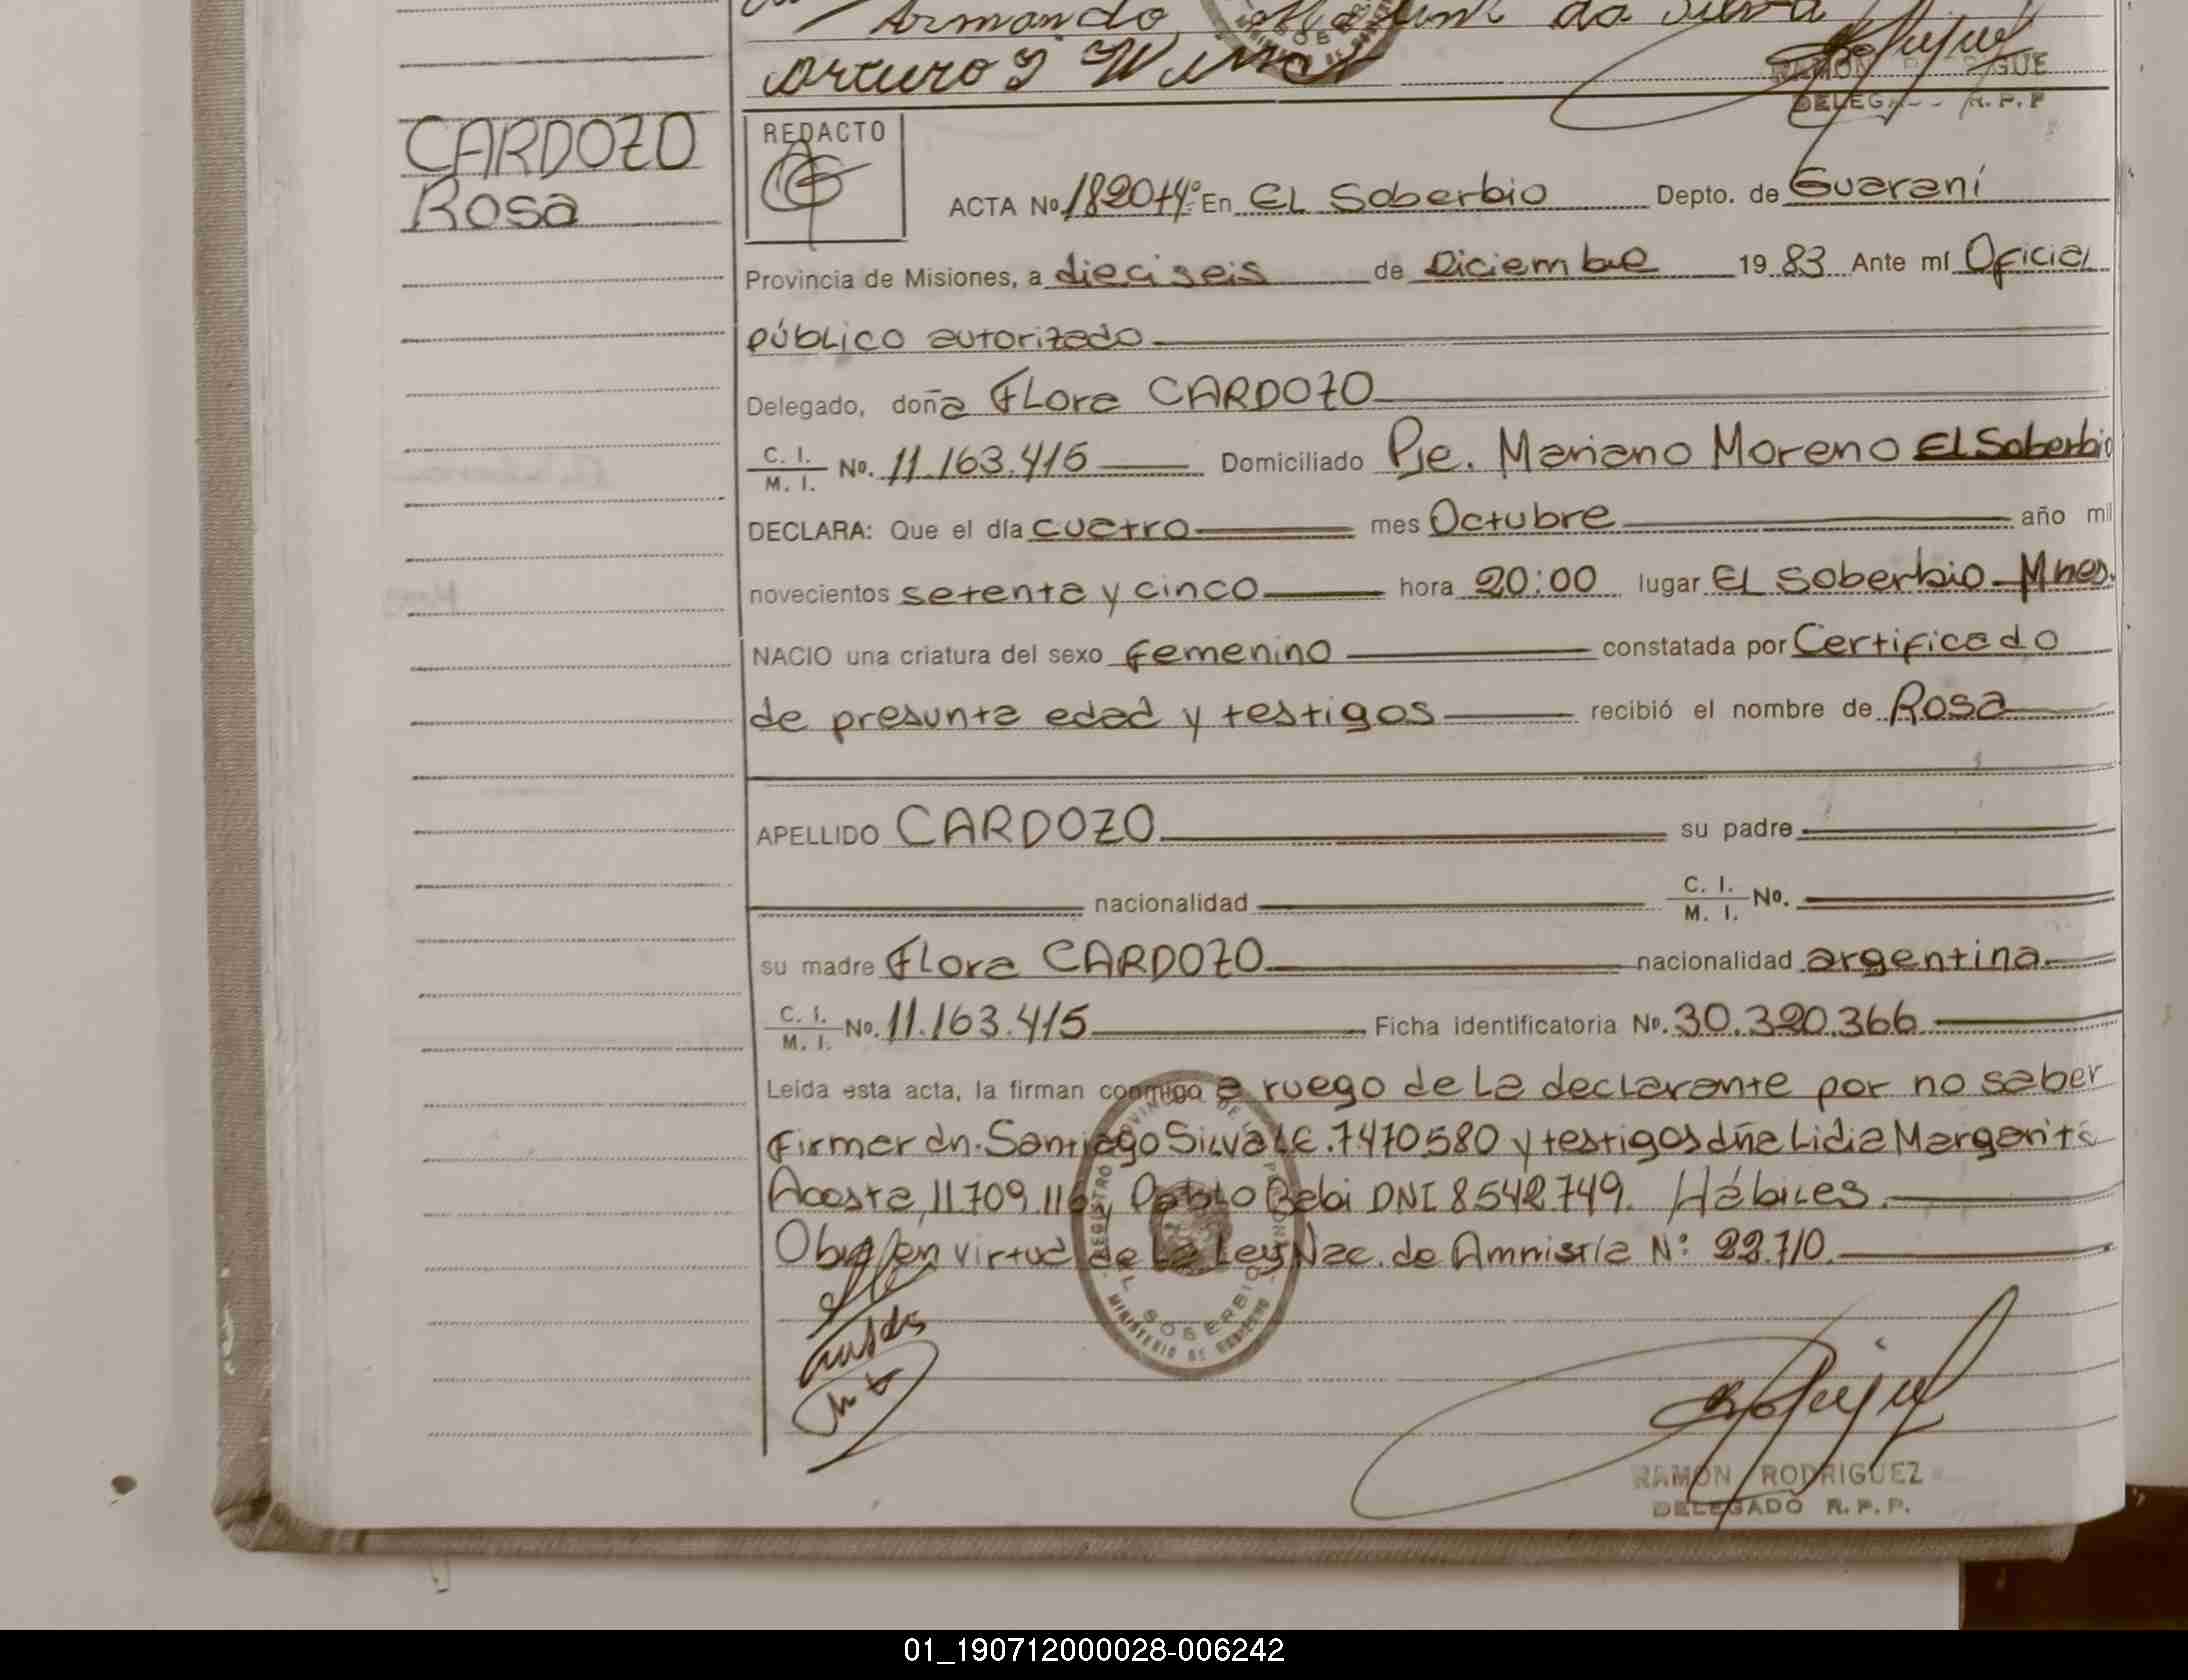 Armando da Silva
Arturo
RAMON
DELEG R. P. P
CARDOZO
Rosa
REDACTO
ACTA Nº 1820 tº4º En EL Soberbio Depto. de Guaraní
Provincia de Misiones, a dieciseis de Diciembre 1983 Ante mí Oficial
público autorizado
Delegado, doña Flora CARDOZO
C. I. / M. I. No. 11.163.415 Domiciliado Pje. Mariano Moreno El Soberbio
DECLARA: Que el día cuatro mes Octubre año mil
novecientos setenta y cinco hora 20:00 lugar EL Soberbio - Mnes.
NACIO una criatura del sexo femenino constatada por Certificado
de presunta edad y testigos recibió el nombre de Rosa
APELLIDO CARDOZO su padre
nacionalidad C. I. / M. I. No.
su madre Flora CARDOZO nacionalidad argentina
C. I. / M. I. No. 11.163.415 Ficha identificatoria No. 30.320.366
Leída esta acta, la firman conmigo a ruego de la declarante por no saber
firmar dn. Santiago Silva LE. 7470580 y testigos dña Lidia Margarita
Acosta, 11.709.116 y Pablo Bebi DNI 8542749. Hábiles.
en virtud de la Ley Nac. de Amnistía Nº 22.710.
REGISTRO PROVINCIAL DE LAS PERSONAS
EL SOBERBIO
MINISTERIO DE GOBIERNO
RAMON RODRIGUEZ
DELEGADO R. P. P.
01_190712000028-006242